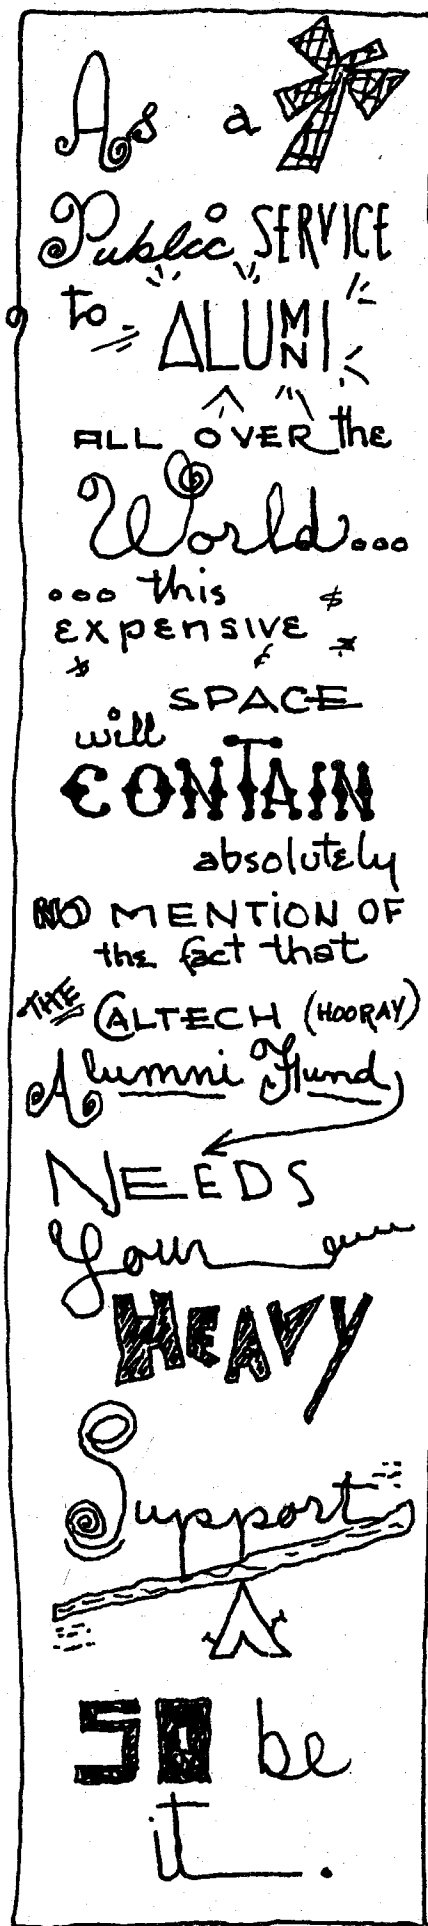 As a
Public SERVICE
to ALUMNI
ALL OVER the
World...
... this
expensive
SPACE
will
CONTAIN
absolutely
NO MENTION OF
the fact that
THE CALTECH (HOORAY)
Alumni Fund
NEEDS
Your
HEAVY
Support
SO be
it.